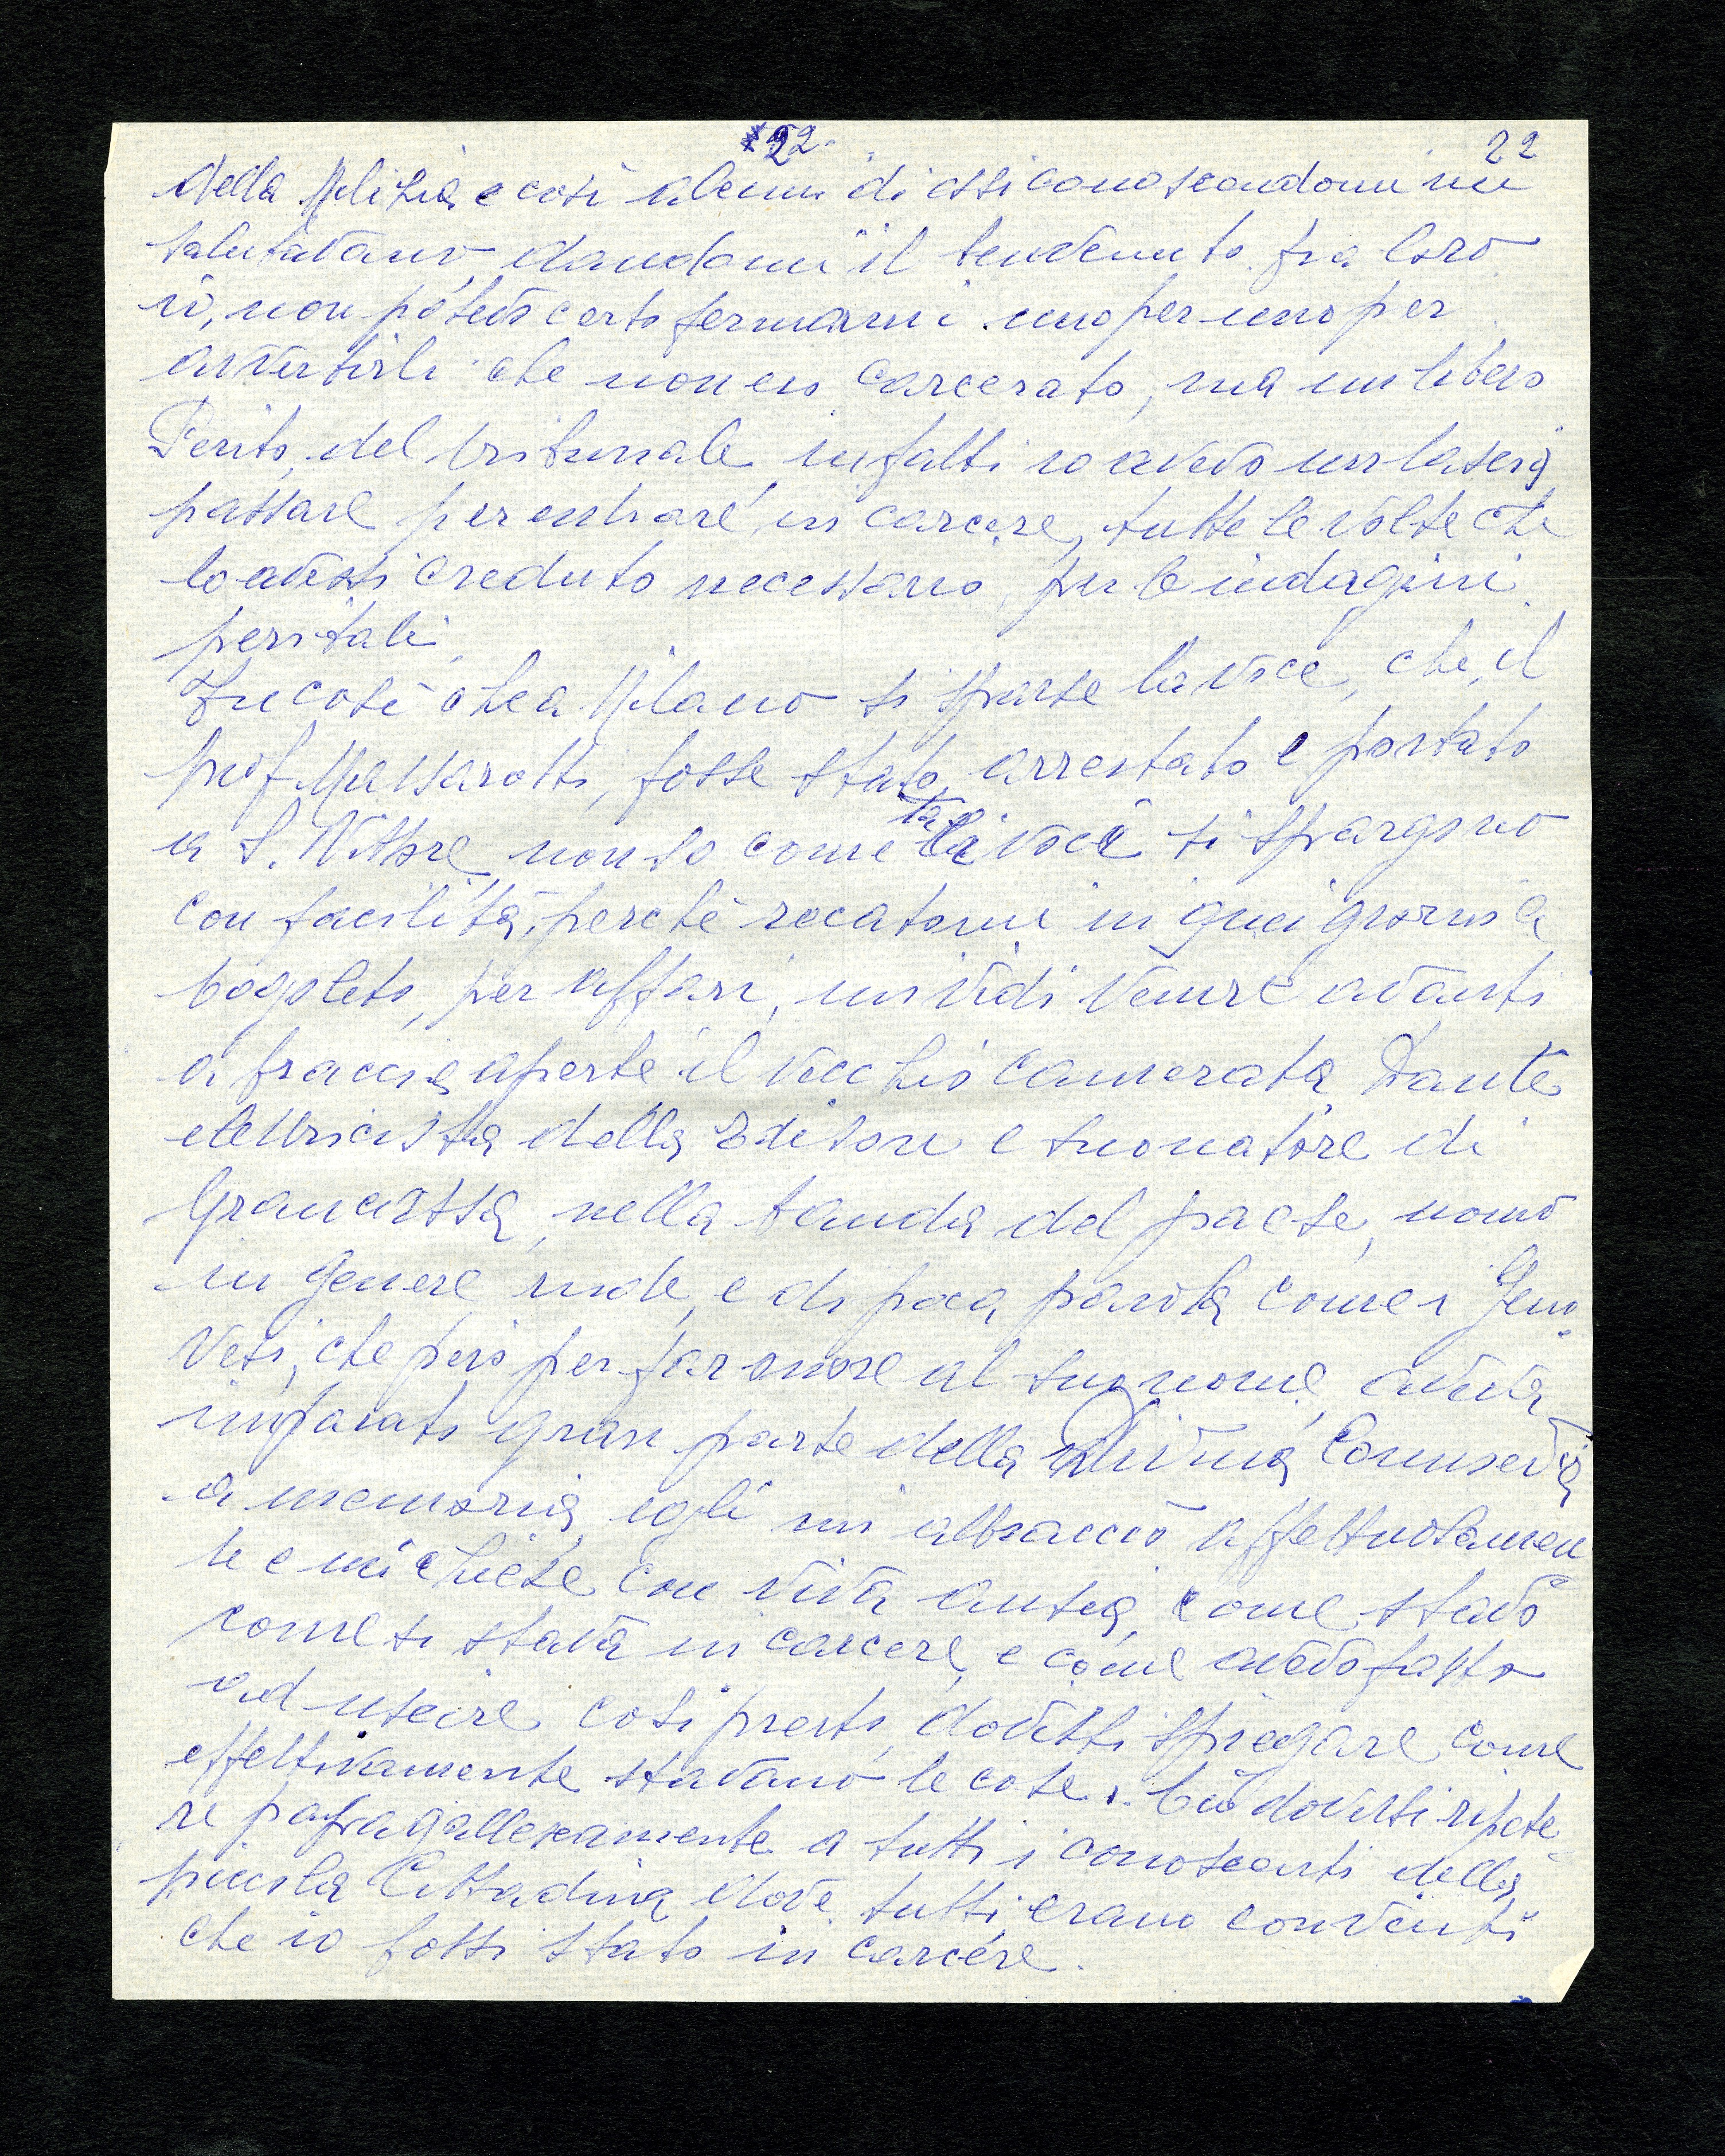 22.
22
della Milizia e così alcuni di essi conoscendomi mi
salutavano, dandomi il benvenuto fra loro
io, non potevo certo fermarmi uno per uno per
avvertirli che non ero carcerato, ma un libero
Perito, del tribunale, infatti io avevo un lascia
passare per entrare in carcere, tutte le volte che
lo avessi creduto necessario, per le indagini
peritali,
Fu così che a Milano si sparse la voce, che, il
prof Massarotti, fosse stato, arrestato e portato
a S. Vittore, non so come tali voci si spargono
con facilità, perchè recatomi in quei giorni a
Cogoleto, per affari, mi vidi venire avanti
a braccia aperte il vecchio camerata Dante
elettricista della Edison e suonatore di
Grancassa, nella banda del paese, uomo
in genere rude, e di poca parola come i Geno
vesi, che però per far onore al suo nome, aveva
imparato gran parte della Divina Commedia
a memoria, egli mi abbracciò affettuosamen
te e mi chiese con viva ansia, come stavo
come si stava in carcere, e come avevo fatto
ad uscire così presto, dovetti spiegare come
effettivamente stavano le cose. Ciò dovetti ripete
re pappagallescamente a tutti i conoscenti della
piccola Cittadina dove tutti, erano convinti
che io fossi stato in carcere.